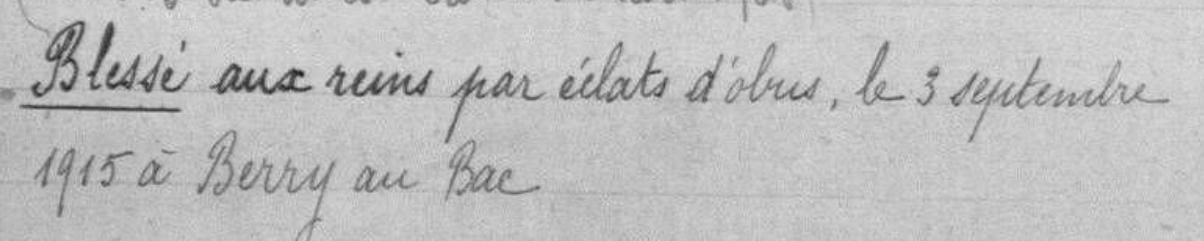 Blessé aux reins par éclats d'obus, le 3 septembre
1915 à Berry au Bac